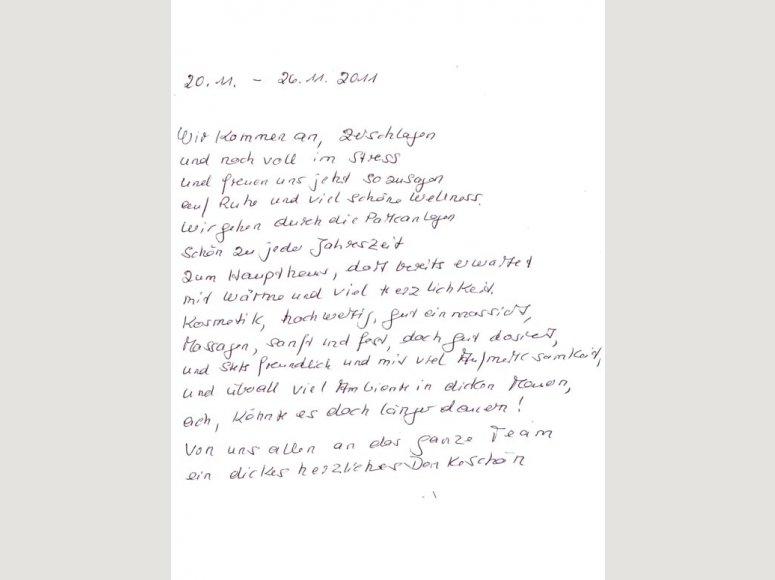 20.11. - 26.11. 2011
Wir kommen an, zerschlagen
und noch voll im Stress
und freuen uns jetzt sozusagen
auf Ruhe und viel schöne Wellness.
Wir gehen durch die Parkanlagen
schön zu jeder Jahreszeit
zum Haupthaus, dort bereits erwartet
mit Wärme und viel Herzlichkeit.
Kosmetik, hochwertig, gut einmassiert,
Massagen, sanft und fest, doch gut dosiert,
und stets freundlich und mit viel Aufmerksamkeit,
und überall viel Ambiente in dicken Mauern,
ach, könnte es doch länger dauern!
Von uns allen an das ganze Team
ein dickes herzliches Dankeschön